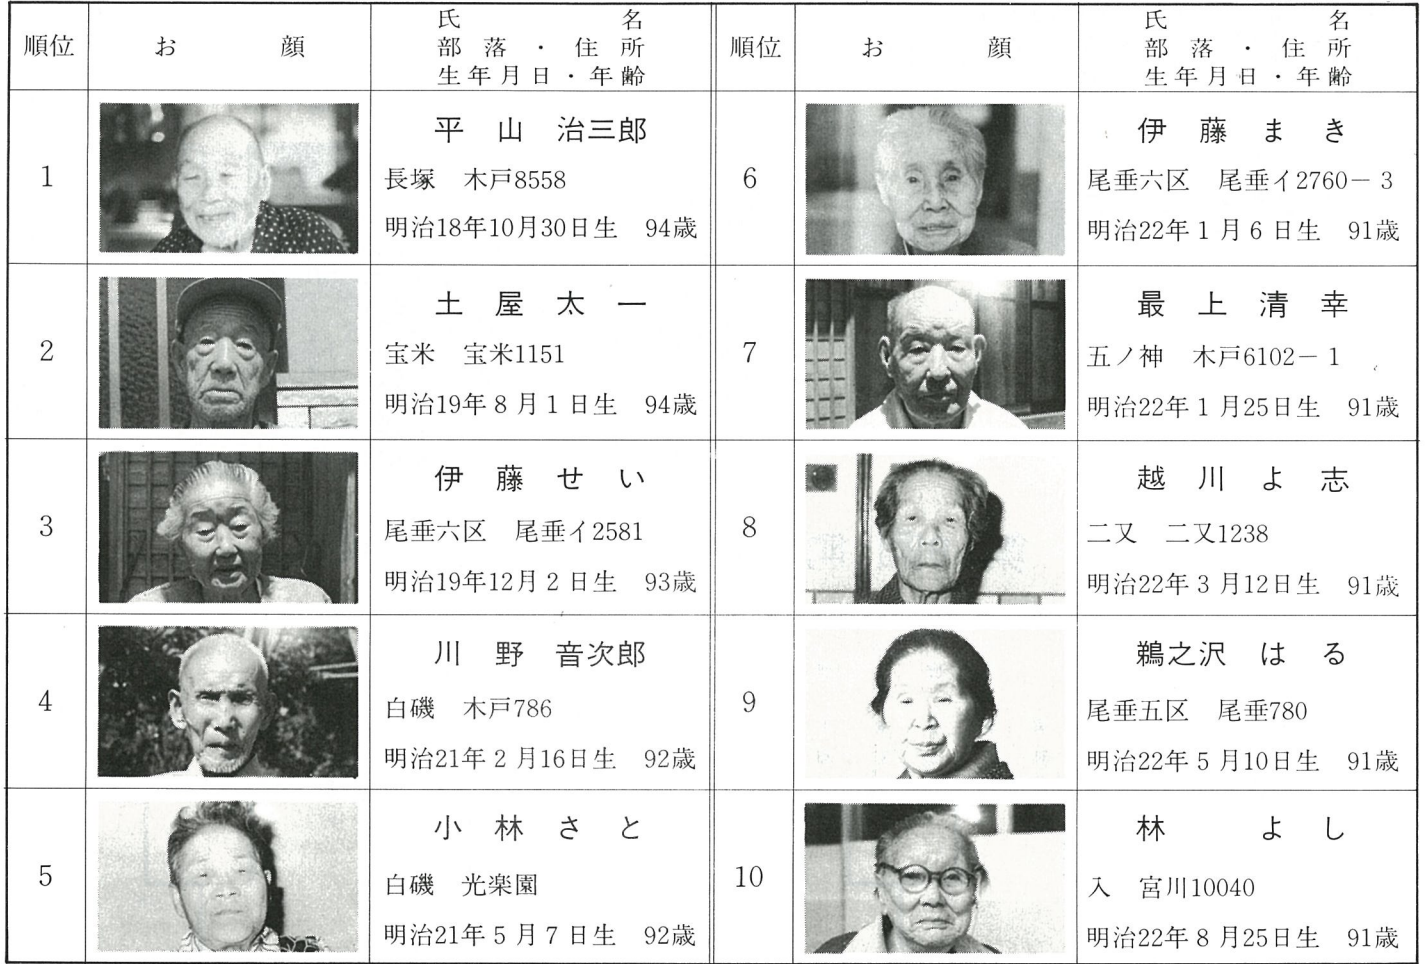 順位　お　顔　氏　名
部落・住所
生年月日・年齢
1
平山　治三郎
長塚　木戸8558
明治18年10月30日生　94歳
2
土屋太一
宝米　宝米1151
明治19年8月1日生　94歳
3
伊藤せい
尾垂六区　尾垂イ2581
明治19年12月2日生　93歳
4
川野　音次郎
白磯　木戸786
明治21年2月16日生　92歳
5
小林さと
白磯　光楽園
明治21年5月7日生　92歳
順位　お　顔　氏　名
部落・住所
生年月日・年齢
6
伊藤まき
尾垂六区　尾垂イ2760－3
明治22年1月6日生　91歳
7
最上清幸
五ノ神　木戸6102－1
明治22年1月25日生　91歳
8
越川よ志
二又　二又1238
明治22年3月12日生　91歳
9
鵜之沢　はる
尾垂五区　尾垂780
明治22年5月10日生　91歳
10
林　よし
入　宮川10040
明治22年8月25日生　91歳